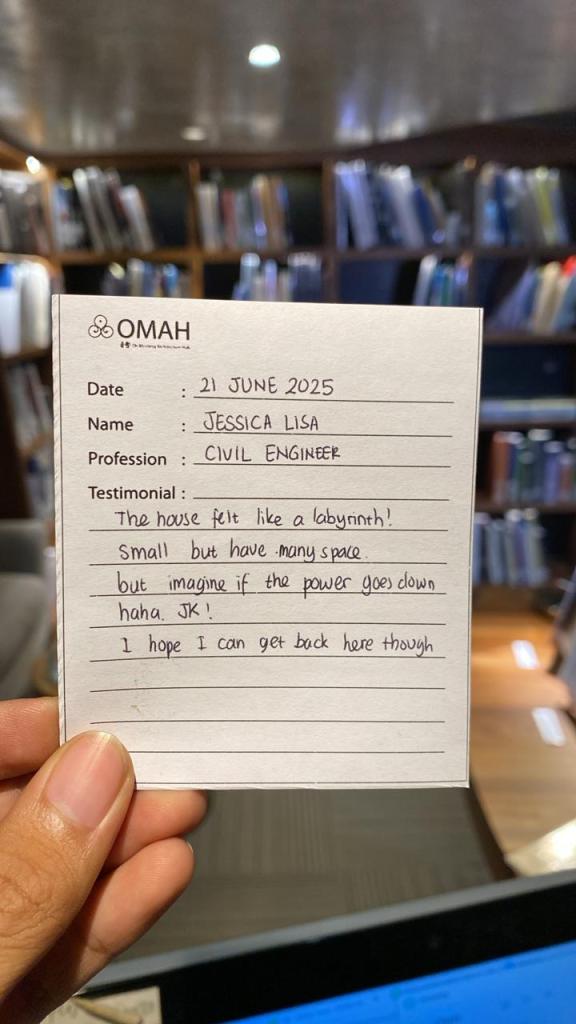 OMAH
Date : 21 JUNE 2025
Name : JESSICA LISA
Profession : CIVIL ENGINEER
Testimonial :
The house felt like a labyrinth!
Small but have many space.
but imagine if the power goes down
haha. JK!
I hope I can get back here though